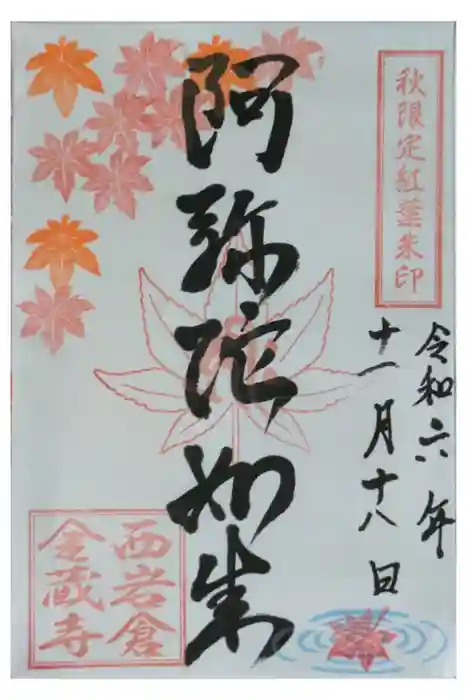 秋限定紅葉朱印
令和六年
十一月十八日
阿弥陀如来
西岩倉
金蔵寺